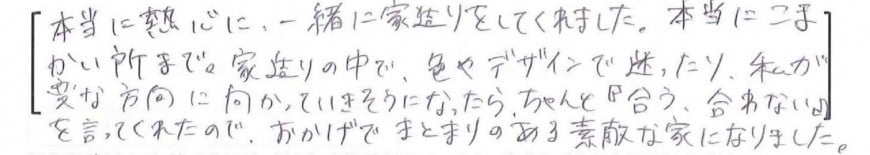 本当に熱心に、一緒に家造りをしてくれました。本当にこま
かい所まで。家造りの中で、色やデザインで迷ったり、私が
変な方向に向かっていきそうになったら、ちゃんと『合う、合わない』
を言ってくれたので、おかげでまとまりのある素敵な家になりました。